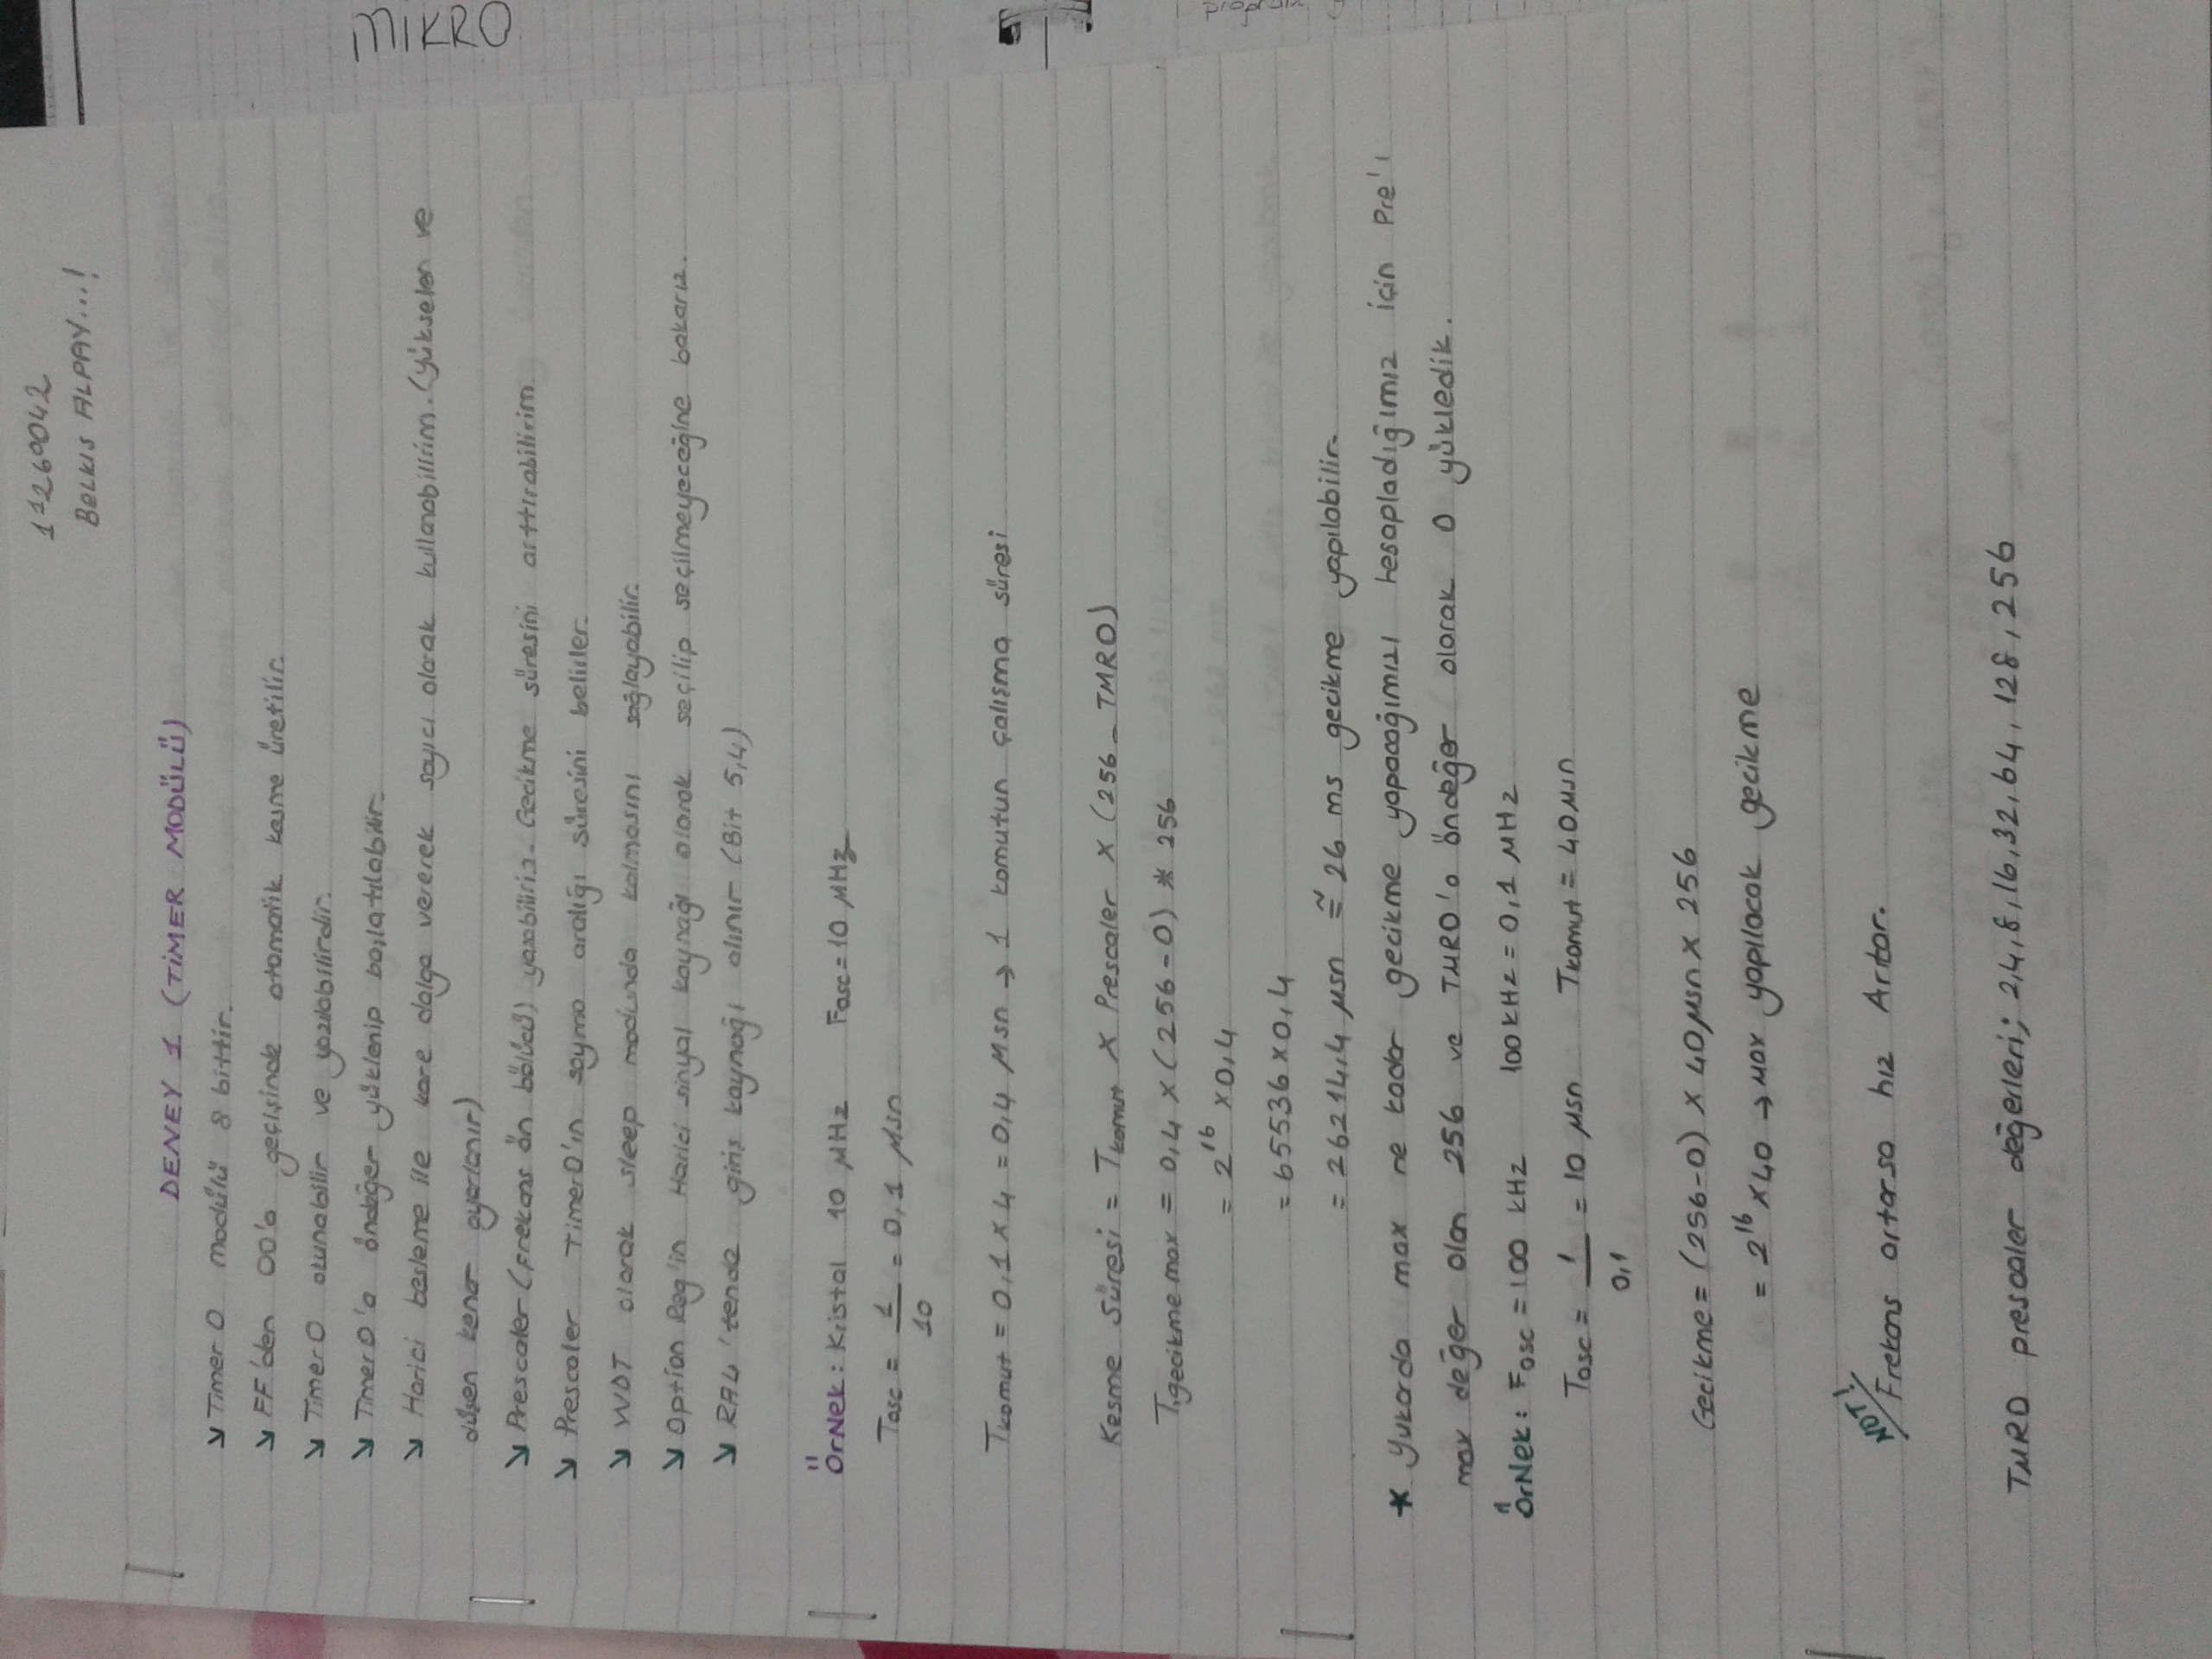 11260042
BELKIS ALPAY...!
DENEY 1 (TİMER MODÜLÜ)
↘ Timer0 modülü 8 bittir.
↘ FF'den 00'a geçişinde otomatik kesme üretilir.
↘ Timer0 okunabilir ve yazılabilirdir.
↘ Timer0'a öndeğer yüklenip başlatılabilir.
↘ Harici besleme ile kare dalga vererek sayıcı olarak kullanabilirim. (Yükselen ve
düşen kenar ayarlanır)
↘ Prescaler (frekans ön bölücü) yazabiliriz. Gecikme süresini arttırabilirim
↘ Prescaler Timer0'ın sayma aralığı süresini belirler.
↘ WDT olarak sleep modunda kalmasını sağlayabilir.
↘ Option Reg'in Harici sinyal kaynağı olarak seçilip seçilmeyeceğine bakarız.
↘ RA4'tende giriş kaynağı alınır (Bit 5,4)
ÖrNek: Kristal 10 MHz Fosc = 10 MHz
Tosc = 1/10 = 0,1 µsn
Tkomut = 0,1 x 4 = 0,4 µsn → 1 komutun çalışma süresi
Kesme Süresi = Tkomut x Prescaler x (256 - TMR0)
T.gecikme max = 0,4 x (256-0) * 256
= 2^16 x 0,4
= 65536 x 0,4
= 26214,4 µsn ≅ 26 ms gecikme yapılabilir.
* Yukarda max ne kadar gecikme yapacağımızı hesapladığımız için Pre'ı
max değer olan 256 ve TMR0'a öndeğer olarak 0 yükledik.
ÖrNek: Fosc = 100 kHz 100 kHz = 0,1 MHz
Tosc = 1/0,1 = 10 µsn Tkomut = 40 µsn
Gecikme = (256-0) x 40 µsn x 256
= 2^16 x 40 → Max yapılacak gecikme
NOT!
Frekans artarsa hız Artar.
TMR0 prescaler değerleri; 2,4,8,16,32,64,128,256
MIKRO